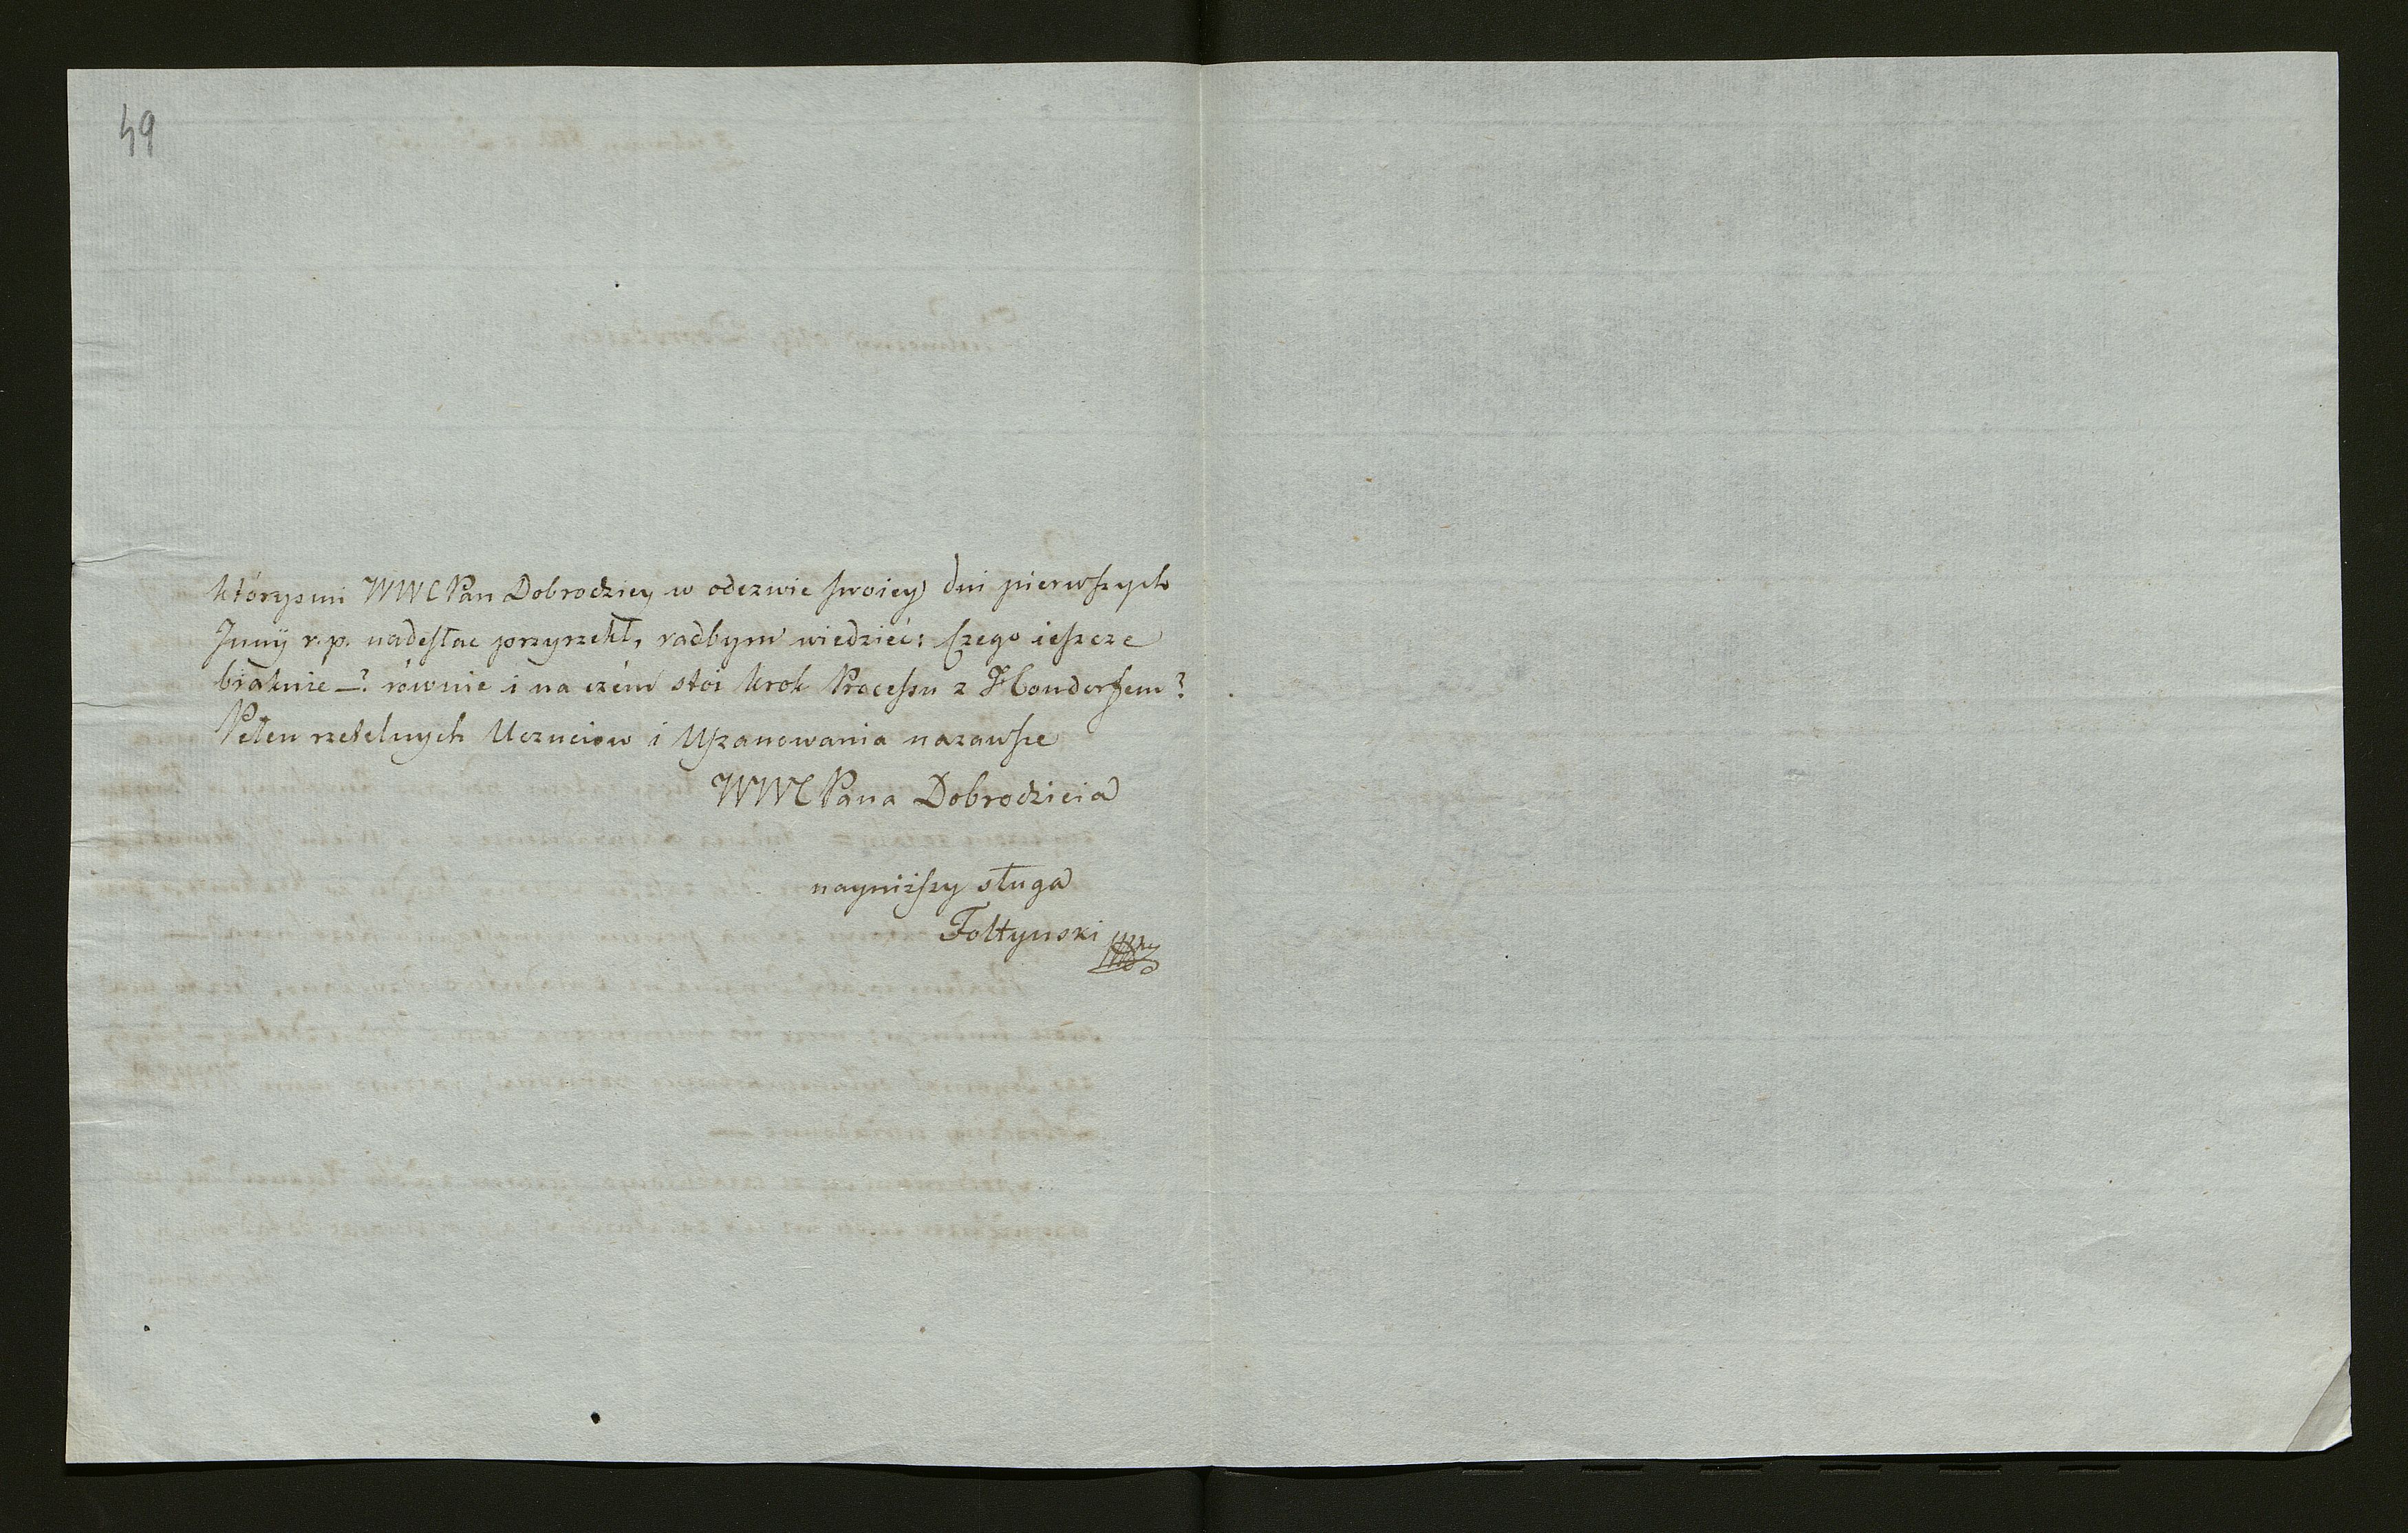 49
którysmi WWC Pan Dobrodziey w odezwie swoiey dni pierwszych
Junÿ r. p. nadesłac przyrzekł, radbym wiedzieć: Czego ieszcze
braknie —? równie i na czém stoi krok Processu z
Pełen rzetelnych Uczuciow i Uszanowania nazawsze
WWC Pana Dobrodzieia
nayniższy sługa
Foltynski